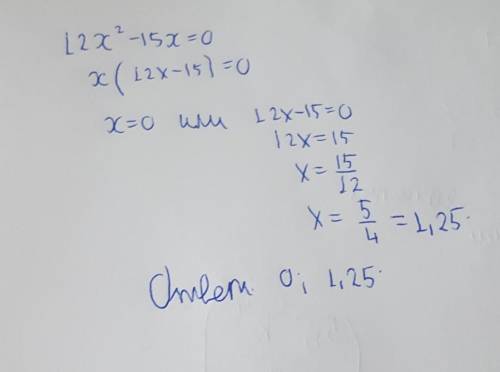 12x² - 15x = 0
x(12x - 15) = 0
x = 0 или 12x - 15 = 0
12x = 15
x = 15/12
x = 5/4 = 1,25.
Ответ. 0; 1,25.